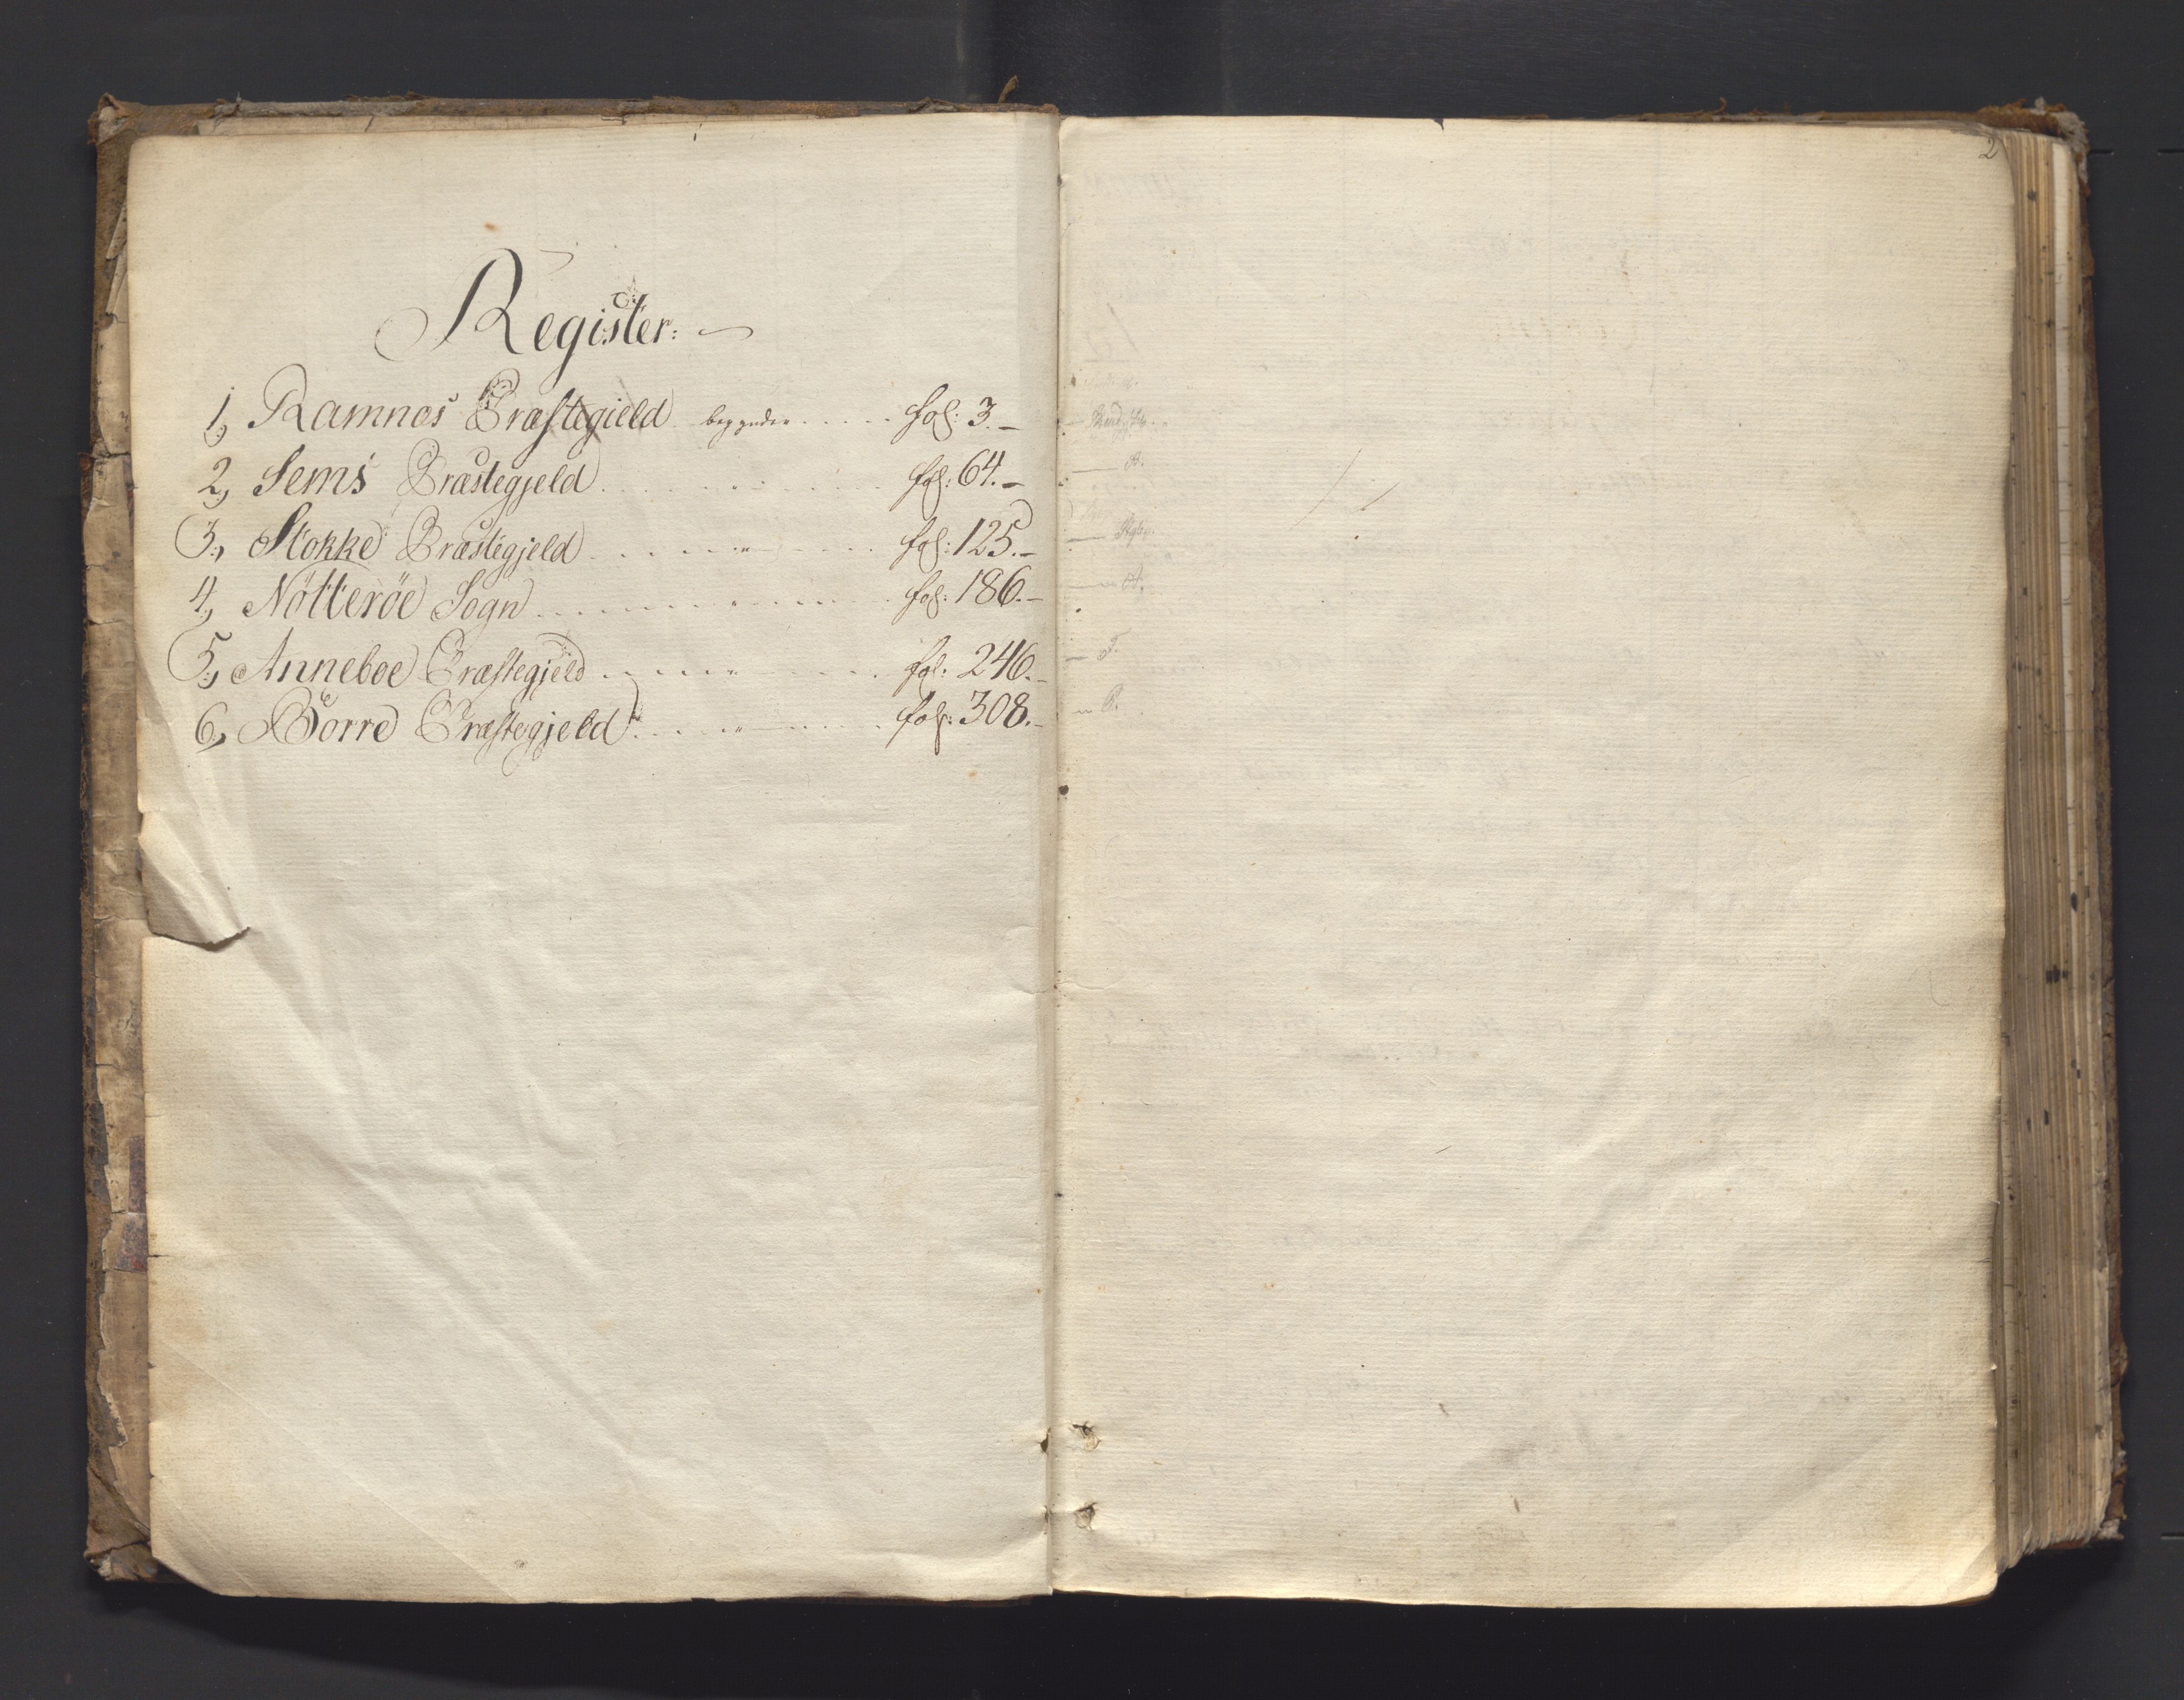 Register:
1, Ramnes Præstegield begynder fol: 3.
2, Sems Præstegjeld fol: 64.
3, Stokke Præstegjeld fol: 125.
4, Nötteröe Sogn fol: 186.
5, Anneboe Præstegjeld fol: 246.
6, Borre Præstegjeld fol: 308.
2